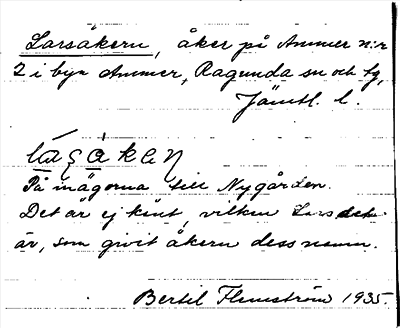 Larsåkern, åker på Ammer n:r
2 i byn Ammer, Ragunda sn och tg,
Jämtl. l.
På inägorna till Nygården.
Det är ej känt, vilken Lars det
är, som givit åkern dess namn.
Bertil Flemström 1935.